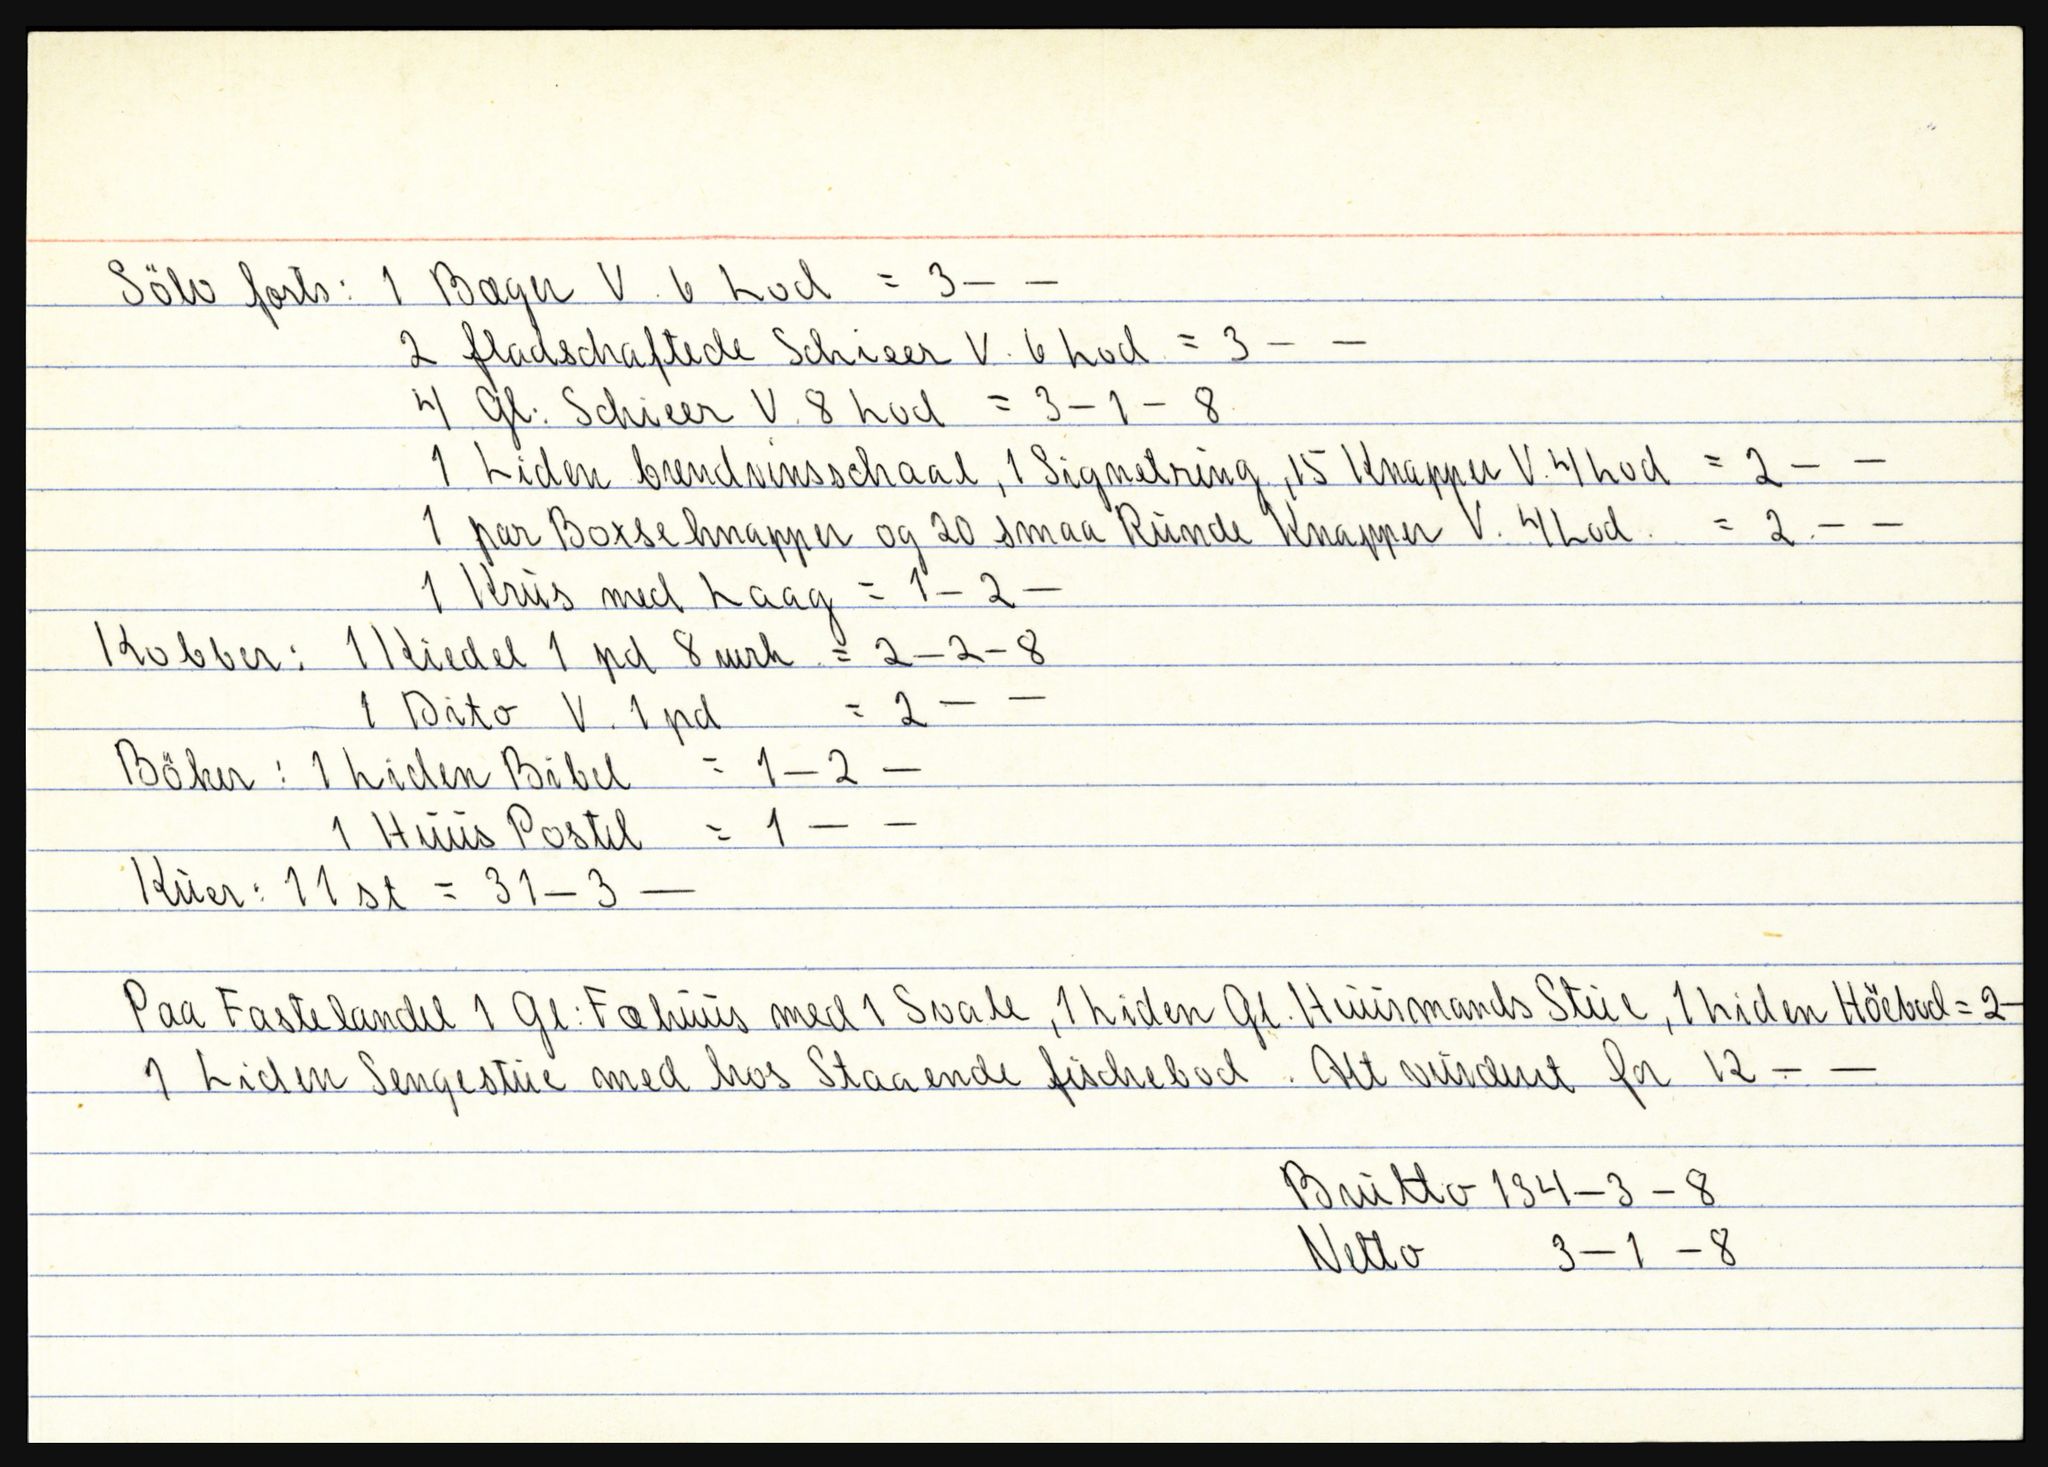 Sölv forts: 1 Bæger V. 6 Lod = 3 – –
2 fladschaftede Schieer V. 6 Lod = 3 – –
4 Gl: Schieer V. 8 Lod = 3 – 1 – 8
1 Liden brendvinsschaal, 1 Signetring, 15 Knapper V. 4 Lod = 2 – –
1 par Boxseknapper og 20 smaa Runde Knapper V. 4 Lod. = 2 – –
1 Krus med Laag = 1 – 2 –
Kobber: 1 Kiedel 1 pd 8 mrk = 2 – 2 – 8
1 Dito V. 1 pd = 2 – –
Böker: 1 Liden Bibel = 1 – 2 –
1 Huus Postil = 1 – –
Küer: 11 st = 31 – 3 –
Paa Fastelandet 1 Gl: Fæhuus med 1 Svale, 1 Liden Gl. Huusmands Stue, 1 Liden Höebod = 2 –
1 Liden Sengestue med hos Staaende fischebod. Alt vurdert for 12 – –
Brutto 134 – 3 – 8
Netto 3 – 1 – 8